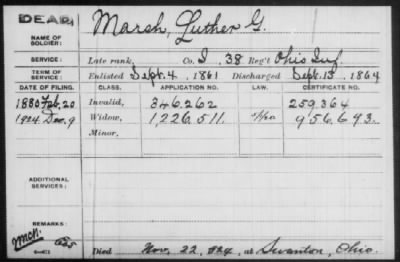 DEAD,
NAME OF SOLDIER: Marsh, Luther G.
SERVICE: Late rank, Co. I, 38 Reg't Ohio Inf.
TERM OF SERVICE: Enlisted Sept. 4, 1861 Discharged Sept. 13, 1864
DATE OF FILING. CLASS. APPLICATION NO. LAW. CERTIFICATE NO.
1880 Feb. 20 Invalid, 346.262 259.364
1924 Dec. 9 Widow, 1,226,511. 956.693.
Minor,
ADDITIONAL SERVICES:
REMARKS:
Died Nov. 22, 1924, at Swanton, Ohio.